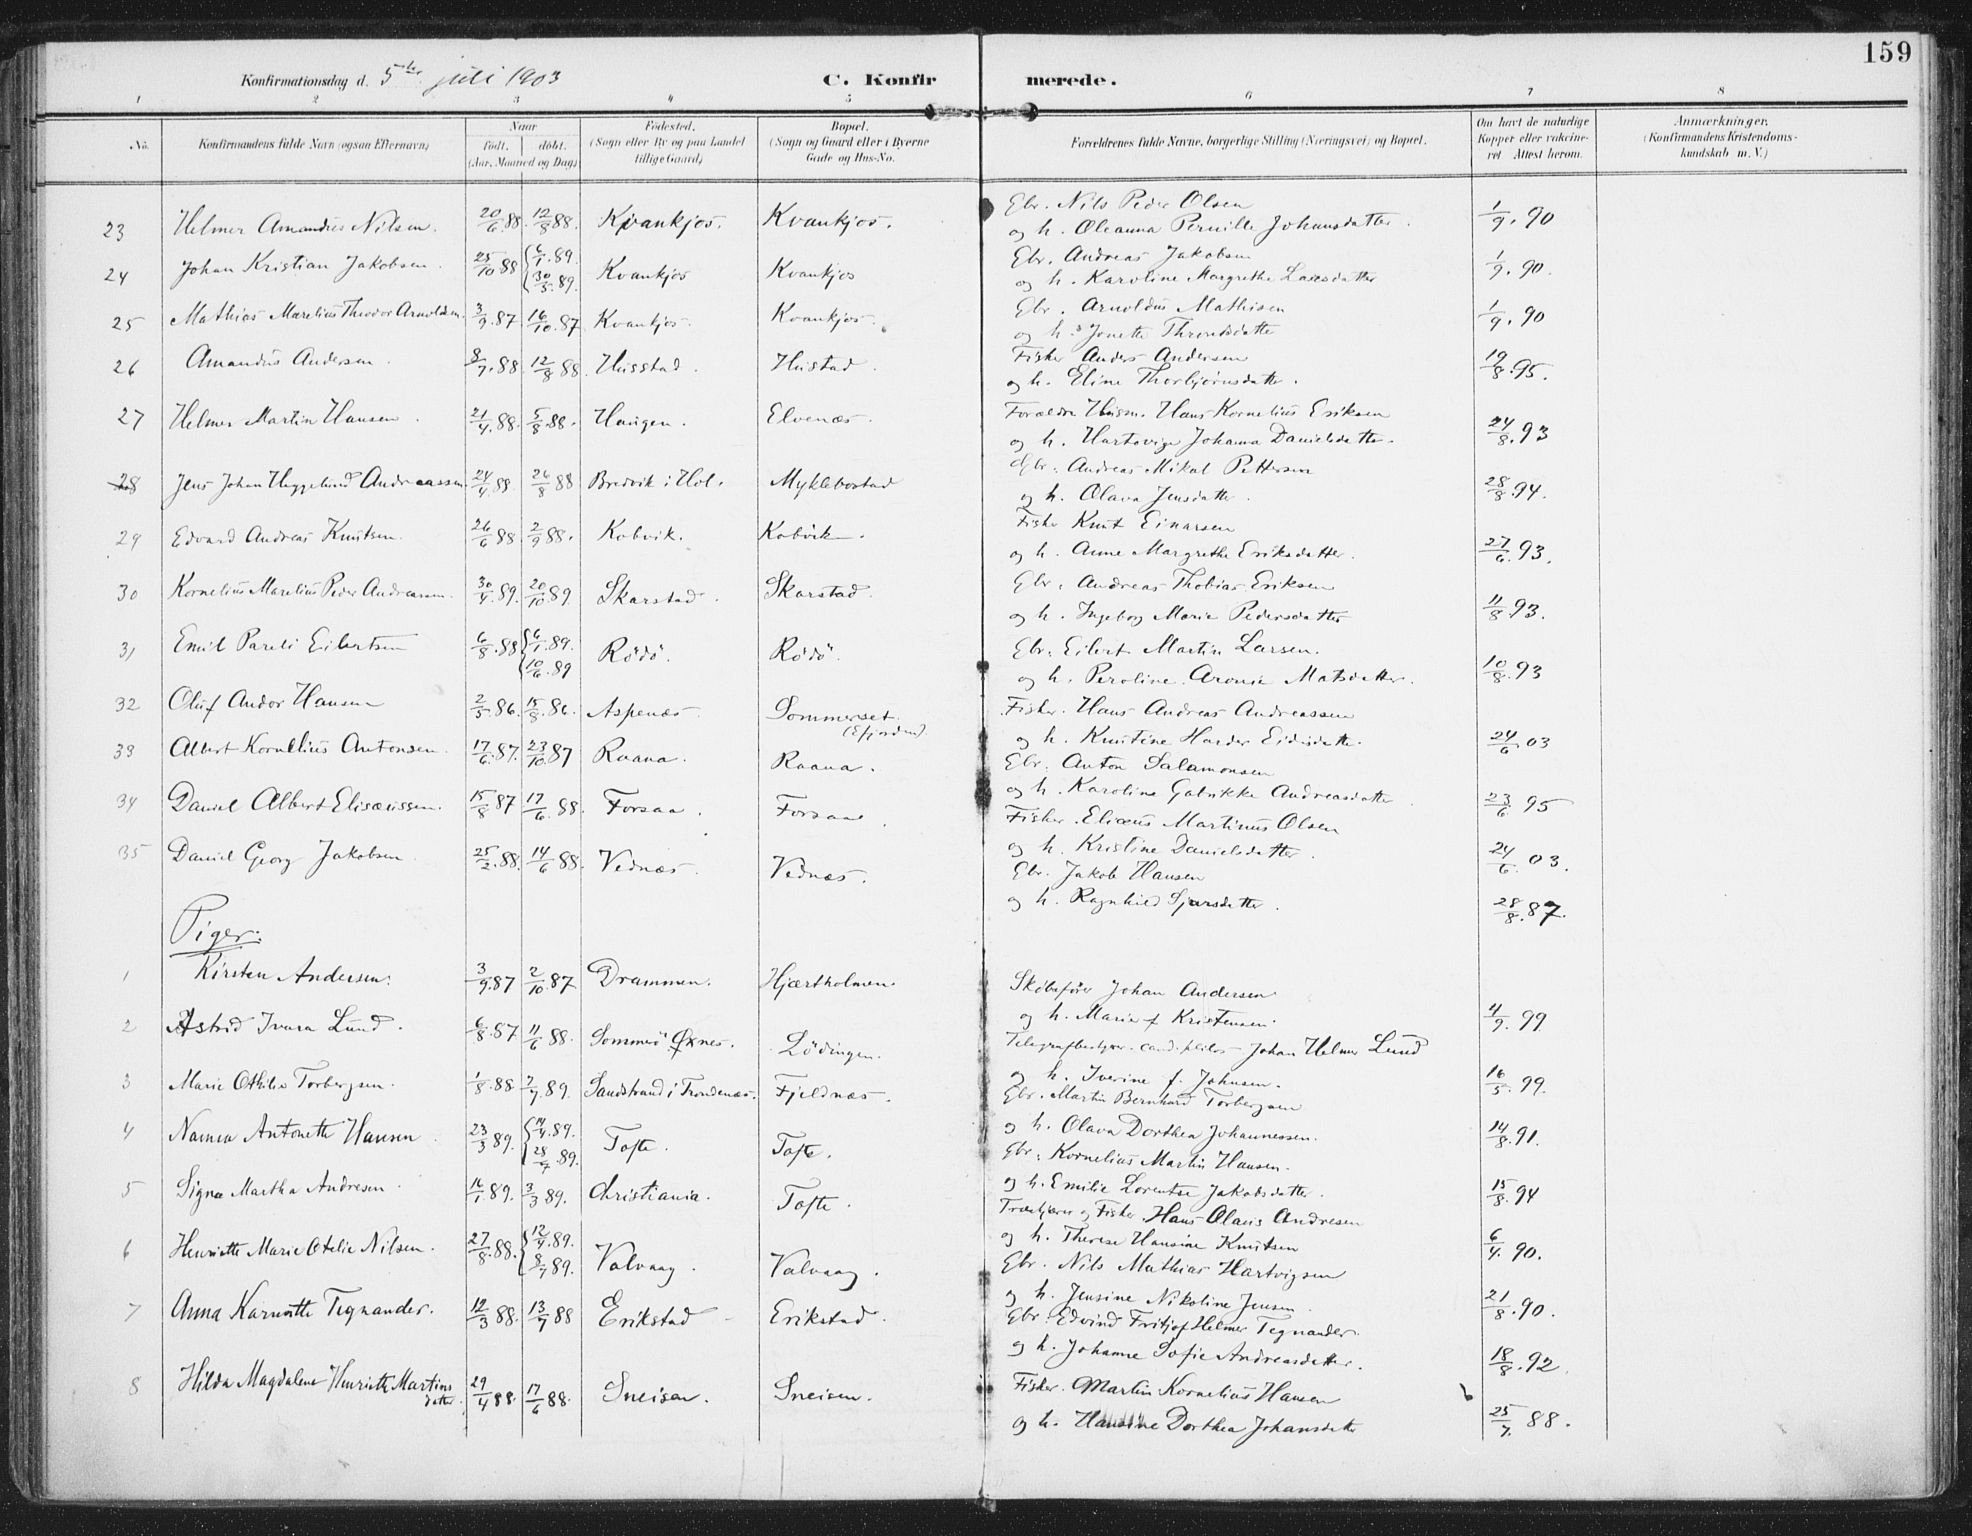 159
Konfirmationsdag d. 5te juli 1903
C. Konfirmerede.
1 2 3 4 5 6 7 8
No. Konfirmandens fulde Navn (ogsaa Efternavn) Naar født. døbt. (Aar, Maaned og Dag) Fødested. (Sogn eller By og paa Landet tillige Gaard) Bopæl. (Sogn og Gaard eller i Byerne Gade og Hus-No. Forældrenes fulde Navne, borgerlige Stilling (Næringsvei) og Bopæl. Om havt de naturlige Kopper eller vakcineret Attest herom. Anmærkninger. (Konfirmandens Kristendomskundskab m. V.)
23 Helmer Amandus Nilsen. 20/6 88. 12/8 88. Kvankjos. Kvankjos. Gbr. Nils Peder Olsen
og h. Oleanna Pernille Johansdatter. 1/9. 90
24 Johan Kristian Jakobsen. 25/10 88 6/1. 89. 30/5. 89. Kvankjos Kvankjos Gbr. Andreas Jakobsen
og h. Karoline Margrethe Larsdatter 1/9. 90.
25 Mathias Marelius Theodor Arnoldsen. 3/9. 87 16/10. 87 Kvankjos. Kvankjos. Gbr. Arnoldus Mathisen
og h. Jonette Throndsdatter 1/9. 90
26 Amandus Andersen. 8/7. 88. 12/8 88. Husstad. Hustad. Fisker Anders Andersen
og h. Eline Thorbjørnsdatter. 19/8. 95.
27 Helmer Martin Hansen. 21/4. 88. 5/8. 88. Haugen. Elvenæs. Forældre Husm. Hans Kornelius Eriksen
og h. Hartovige Johanna Danielsdatter. 24/8. 93
28 Jens Johan Heggelund Andreassen. 24/4. 88. 26/8 88 Bredvik i Hol. Myklebostad Gbr. Andreas Mikal Pettersen
og h. Olava Jensdatter. 28/8. 94.
29 Edvard Andreas Knutsen. 26/6 88. 2/9 88. Kobvik. Kobvik. Fisker Knut Einarsen
og h. Anne Margrethe Eriksdatter. 27/6. 93.
30 Kornelius Marelius Peder Andreassen. 30/4. 89. 20/10 89. Skarstad. Skarstad. Gbr. Andreas Thobias Eriksen
og h. Ingeborg Marie Pedersdatter 11/8. 93.
31 Emil Pareli Eilertsen 6/8. 88 6/1. 89. 10/6. 89 Rödö. Rödö. Gbr. Eilert Martin Larsen.
og h. Peroline Aronie Matsdatter. 10/8. 93
32 Oluf Andor Hansen 2/5. 86. 15/8. 86. Aspenæs. Sommerset. (Efjorden). Fisker. Hans Andreas Andreassen
og h. Knutine Harder Eidisdatter. 24/6. 03
33 Albert Kornelius Antonsen. 17/6. 87. 23/10. 87 Raana. Raana. Gbr. Anton Salamonsen
og h. Karoline Gabrikke Andreasdatter. 23/6 95
34 Daniel Albert Elisæussen. 15/8 87 17/6. 88. Forsaa. Forsaa. Fisker. Eliæus Martinus Olsen
og h. Kristine Danielsdatter. 24/6. 03.
35 Daniel Georg Jakobsen. 25/2. 88. 14/6 88. Vednæs. Vednæs. Gbr. Jakob Hansen
og h. Ragnhild Sjursdatter. 28/8. 87.
Piger:
1 Kirsten Andersen. 3/9. 87 2/10. 87 Drammen. Hjertholmen. Skibsfører Johan Andersen
og h. Marie f. Kristensen. 4/9. 99
2 Astrid Ivara Lund. 6/8. 87 11/6 88. Sommerö Øxnes. Lödingen. Telegrafbestyrer. cand. philos. Johan Helmer Lund
og h. Iverine f. Johnsen. 16/5. 99.
3 Marie Othilie Torbergsen. 1/8. 88 7/7. 89. Sandstrand i Trondenæs. Fjeldnæs. Gbr. Martin Bernhard Torbergsen
og h. Olava Dorthea Johannessen. 14/8. 91.
4 Namea Antonette Hansen. 23/3 89. 14/4. 89. 28/7. 89. Tofte. Tofte. Gbr. Kornelius Martin Hansen.
og h. Emilie Lorentse Jakobsdatter. 15/8. 94
5 Signe Martha Andresen. 16/1. 89. 3/3 89. Christiania. Tofte. Hans Olaus Andresen
og h. Therese Hansine Knutsen 6/4. 90.
6 Henriette Marie Otelie Nilsen. 27/8. 88. 12/4. 89. 8/7 89. Valvaag. Valvaag. Gbr. Nils Mathias Hartvigsen
og h. Jensine Nikoline Jensen. 21/8. 90.
7 Anna Karnitte Tegnander. 12/3 88. 13/7 88 Erikstad Erikstad. Gbr. Edvind Fritjof Helmer Tegnander.
og h. Johanne Sofie Andreasdatter. 18/8. 92.
8 Hilda Magdalene Henriette Martinsdatter. 29/4 88. 17/6 88. Sneisen. Sneisen. Fisker. Martin Kornelius Hansen
og h. Hansine Dorthea Johansdatter 25/7. 88.